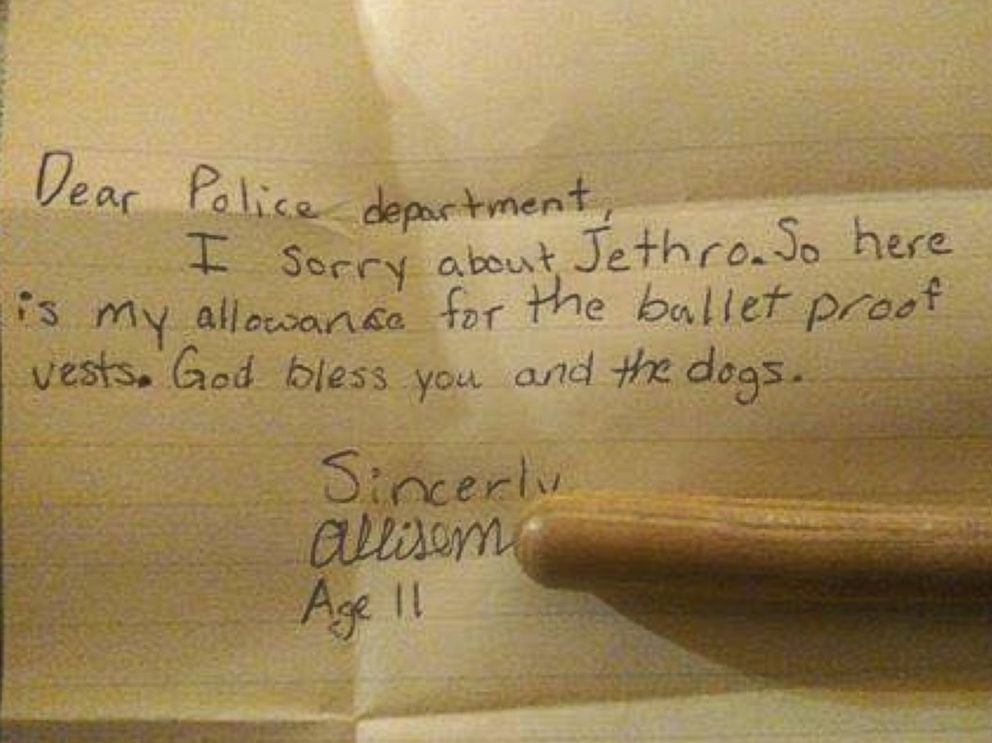 Dear Police department,
I sorry about Jethro. So here
is my allowance for the ballet proof
vests. God bless you and the dogs.
Sincerly
Allison
Age 11